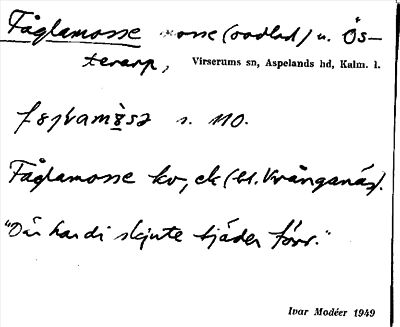 Fåglamosse mosse (oodlad) u. Ös-
terarp, Virserums sn, Aspelands hd, Kalm. l.
s. 110.
Fåglamosse kv, ek (bl. Kvånganäs).
"Där ha di skjute tjäder förr."
Ivar Modéer 1949